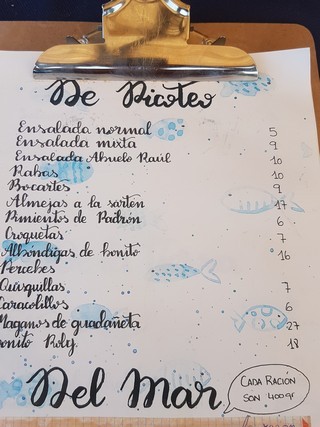 De Picoteo
Ensalada normal 5
Ensalada mixta 9
Ensalada Abuelo Raúl 10
Rabas 10
Bocartes 9
Almejas a la sartén 17
Pimientos de Padrón 6
Croquetas 7
Albóndigas de bonito 16
Percebes
Quisquillas 7
Caracolillos 6
Maganos de guadañeta 27
Bonito Roly 18
Del Mar
CADA RACIÓN
SON 400gr